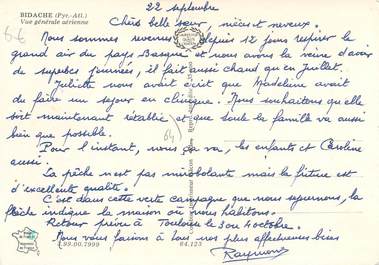 BIDACHE (Pyr.-Atl.)
Vue générale aérienne
22 septembre
Chère belle sœur, nièces et neveux.
Nous sommes revenus depuis 12 jours respirer le
grand air du pays Basque et nous avons la veine d'avoir
de superbes journées, il fait aussi chaud qu'en Juillet.
Juliette nous avait écrit que Madeleine avait
du faire un séjour en clinique. Nous souhaitons qu'elle
soit maintenant rétablie et que toute la famille va aussi
bien que possible.
64)
Pour l'instant, nous ça va, les enfants et Caroline
aussi.
La pêche n'est pas mirobolante mais la friture est
d'excellente qualité.
C'est dans cette verte campagne que nous séjournons, la
flèche indique la maison où nous habitons.
Retour prévu à Toulouse le 3 ou 4 octobre.
99.00.7999
64.123
Nous vous faisons à tous nos plus affectueuses bises
Raymond